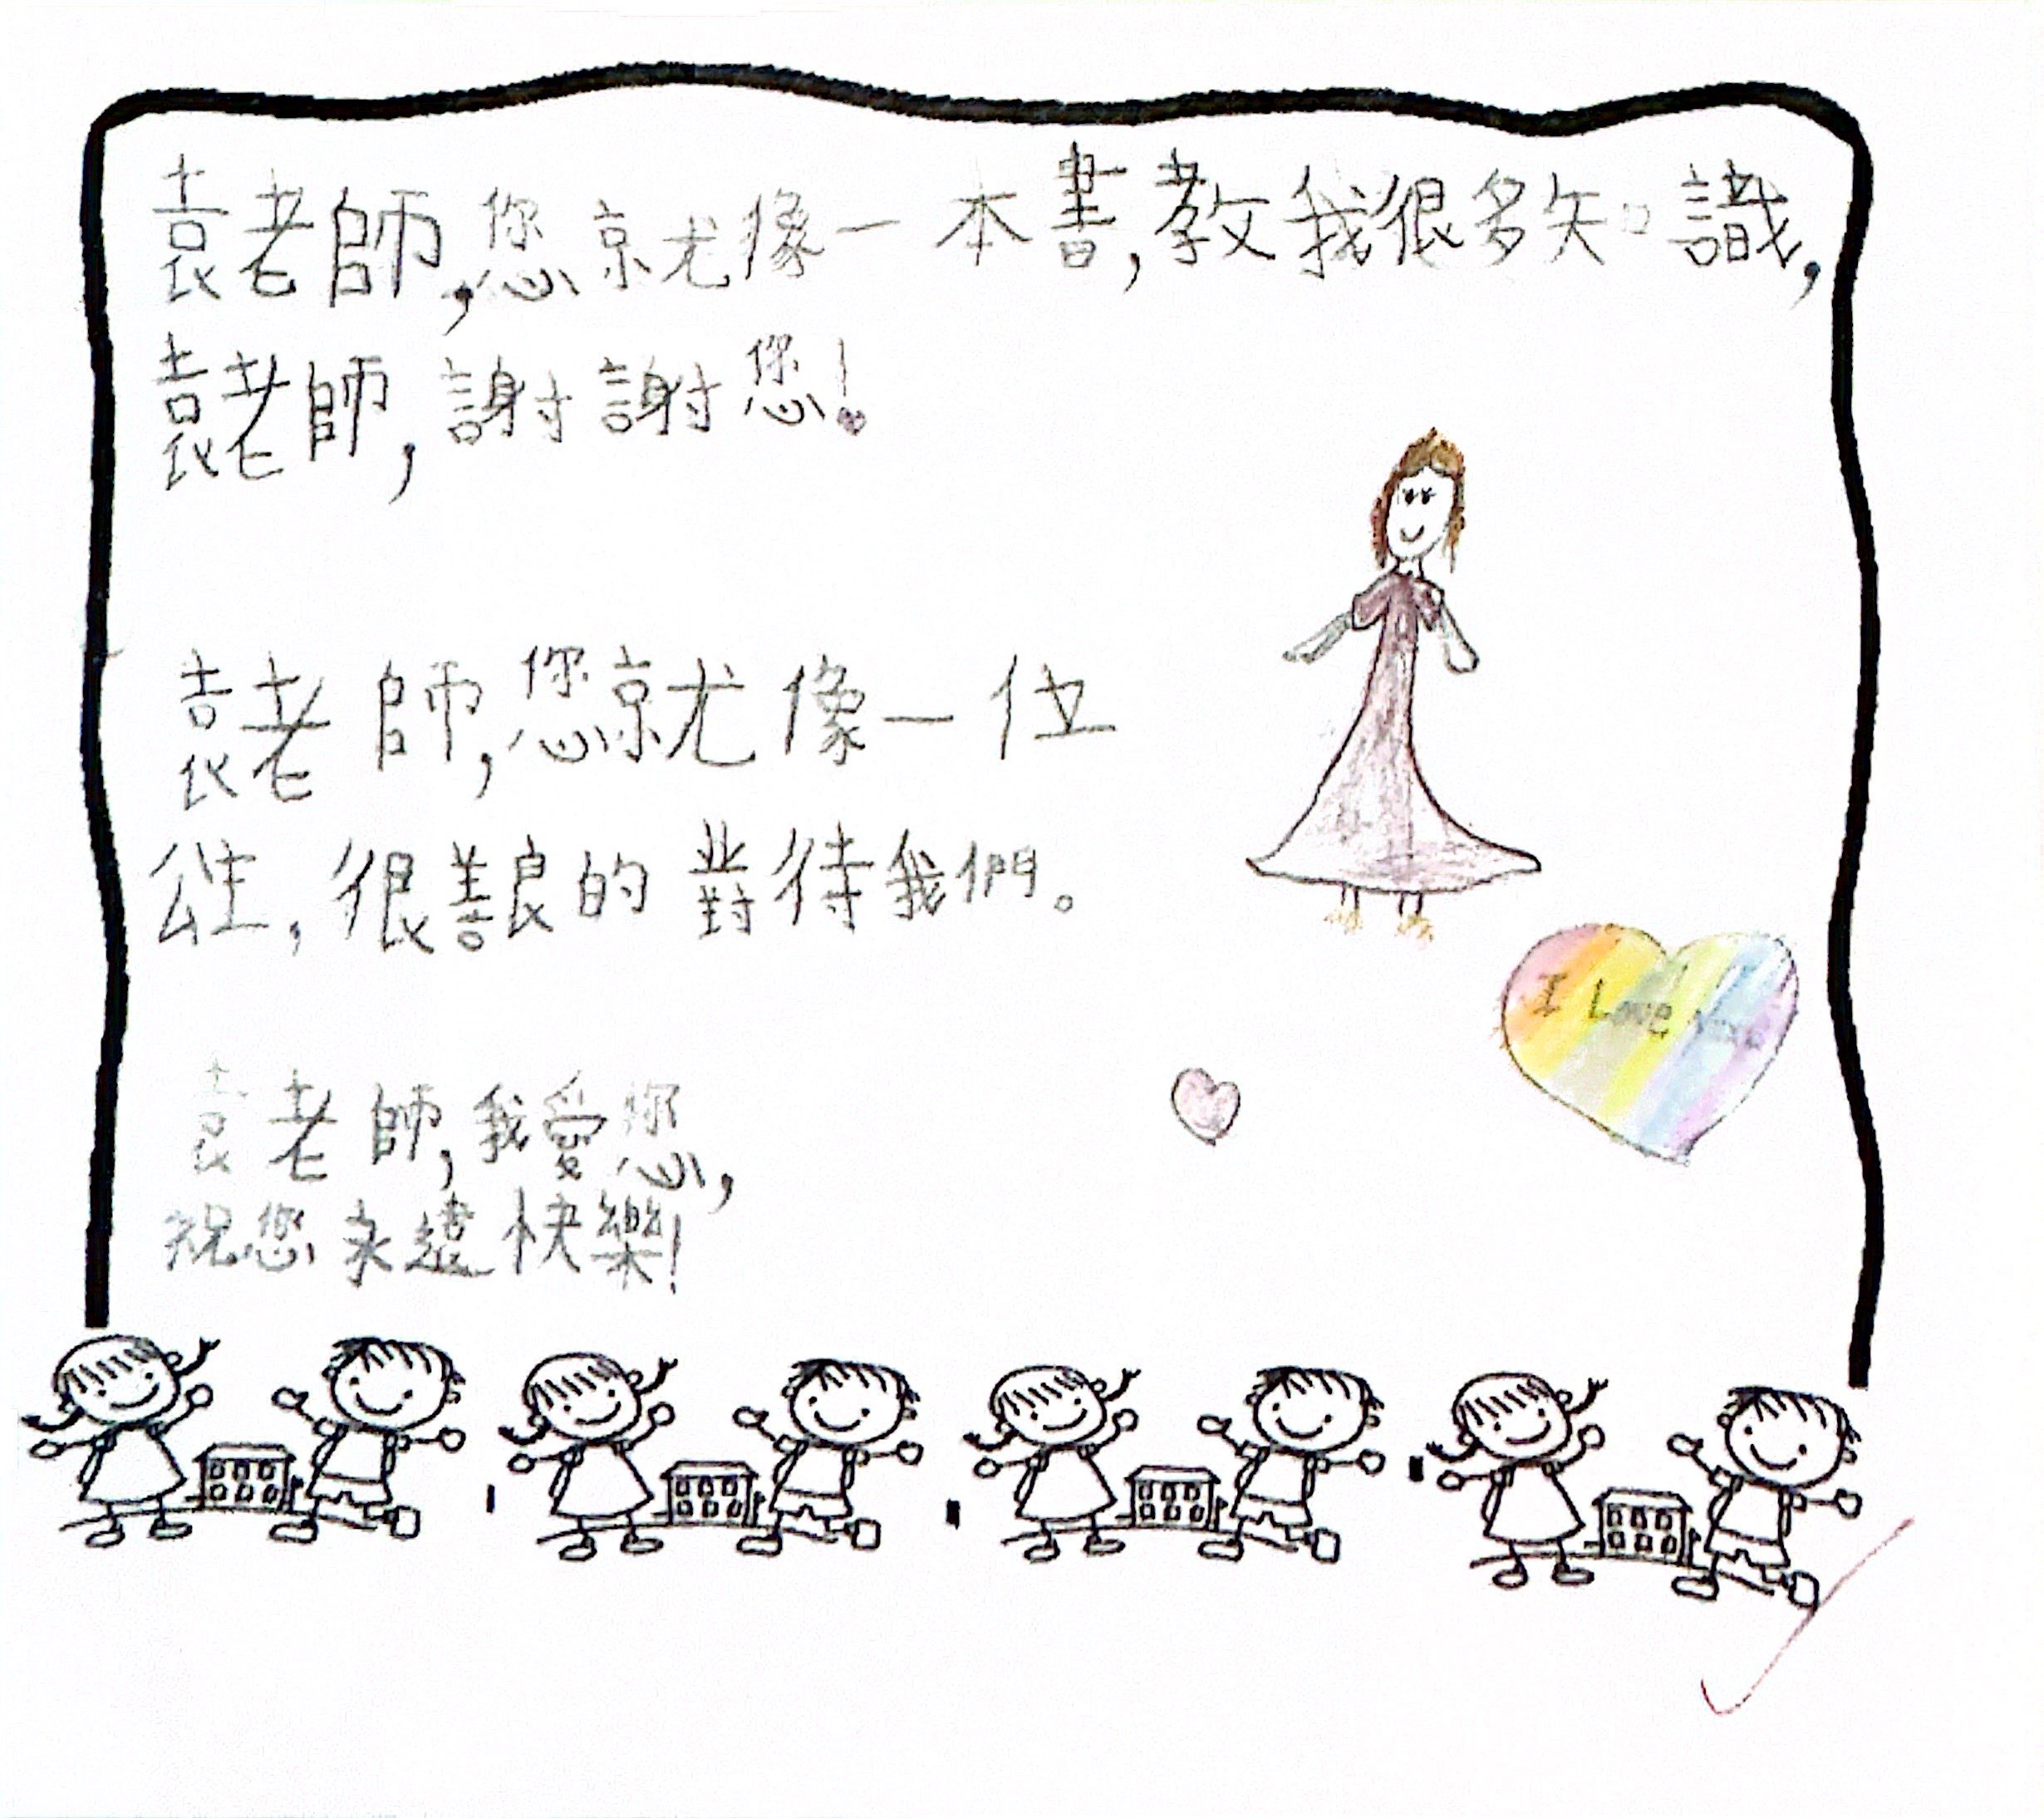 袁老師,您就像一本書,教我很多知識,
袁老師,謝謝您!
袁老師,您就像一位
公主,很善良的對待我們。
I Love you
袁老師,我愛您,
祝您永遠快樂!